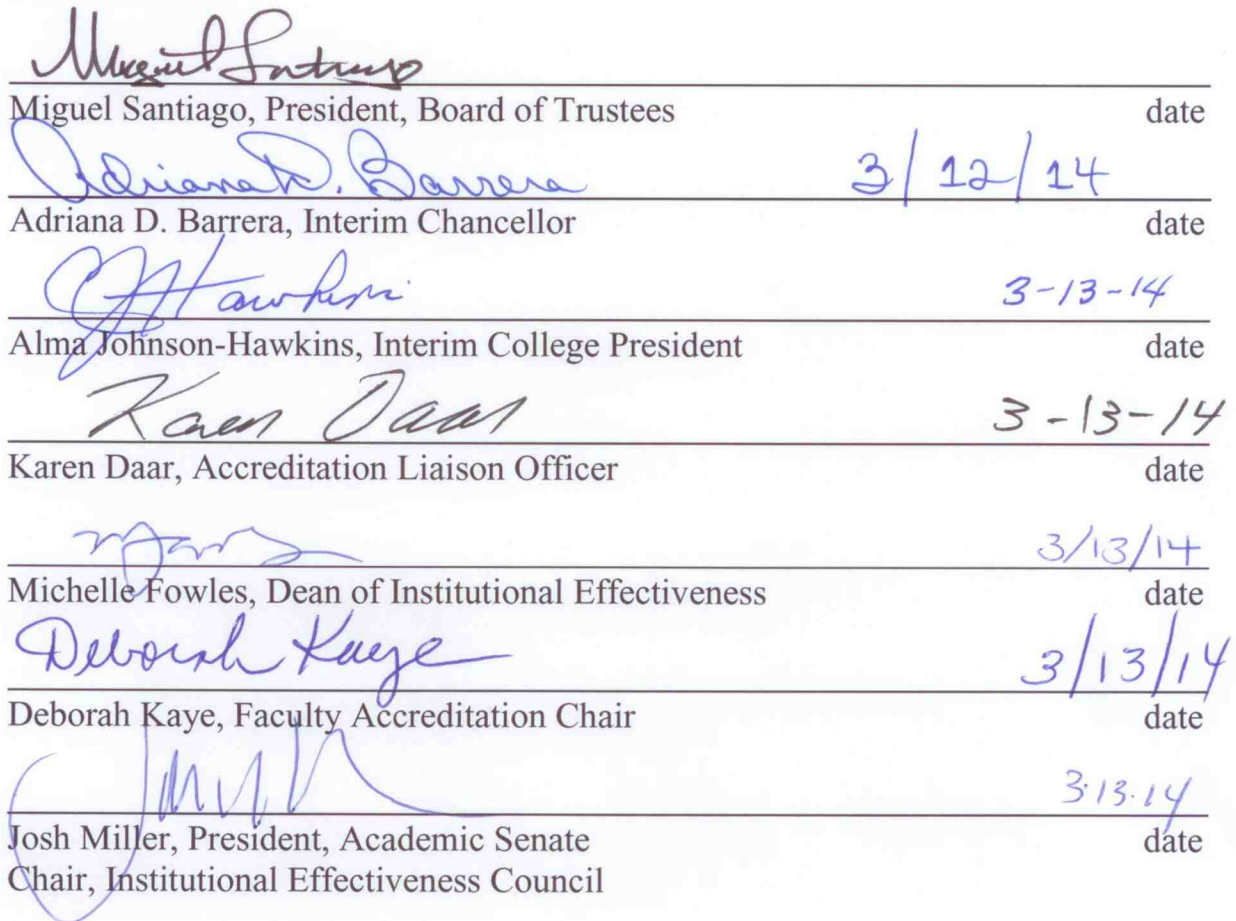 Miguel Santiago
Miguel Santiago, President, Board of Trustees date
Adriana D. Barrera 3/12/14
Adriana D. Barrera, Interim Chancellor date
Hawkins 3-13-14
Alma Johnson-Hawkins, Interim College President date
Karen Daar 3-13-14
Karen Daar, Accreditation Liaison Officer date
3/13/14
Michelle Fowles, Dean of Institutional Effectiveness date
Deborah Kaye 3/13/14
Deborah Kaye, Faculty Accreditation Chair date
3.13.14
Josh Miller, President, Academic Senate date
Chair, Institutional Effectiveness Council